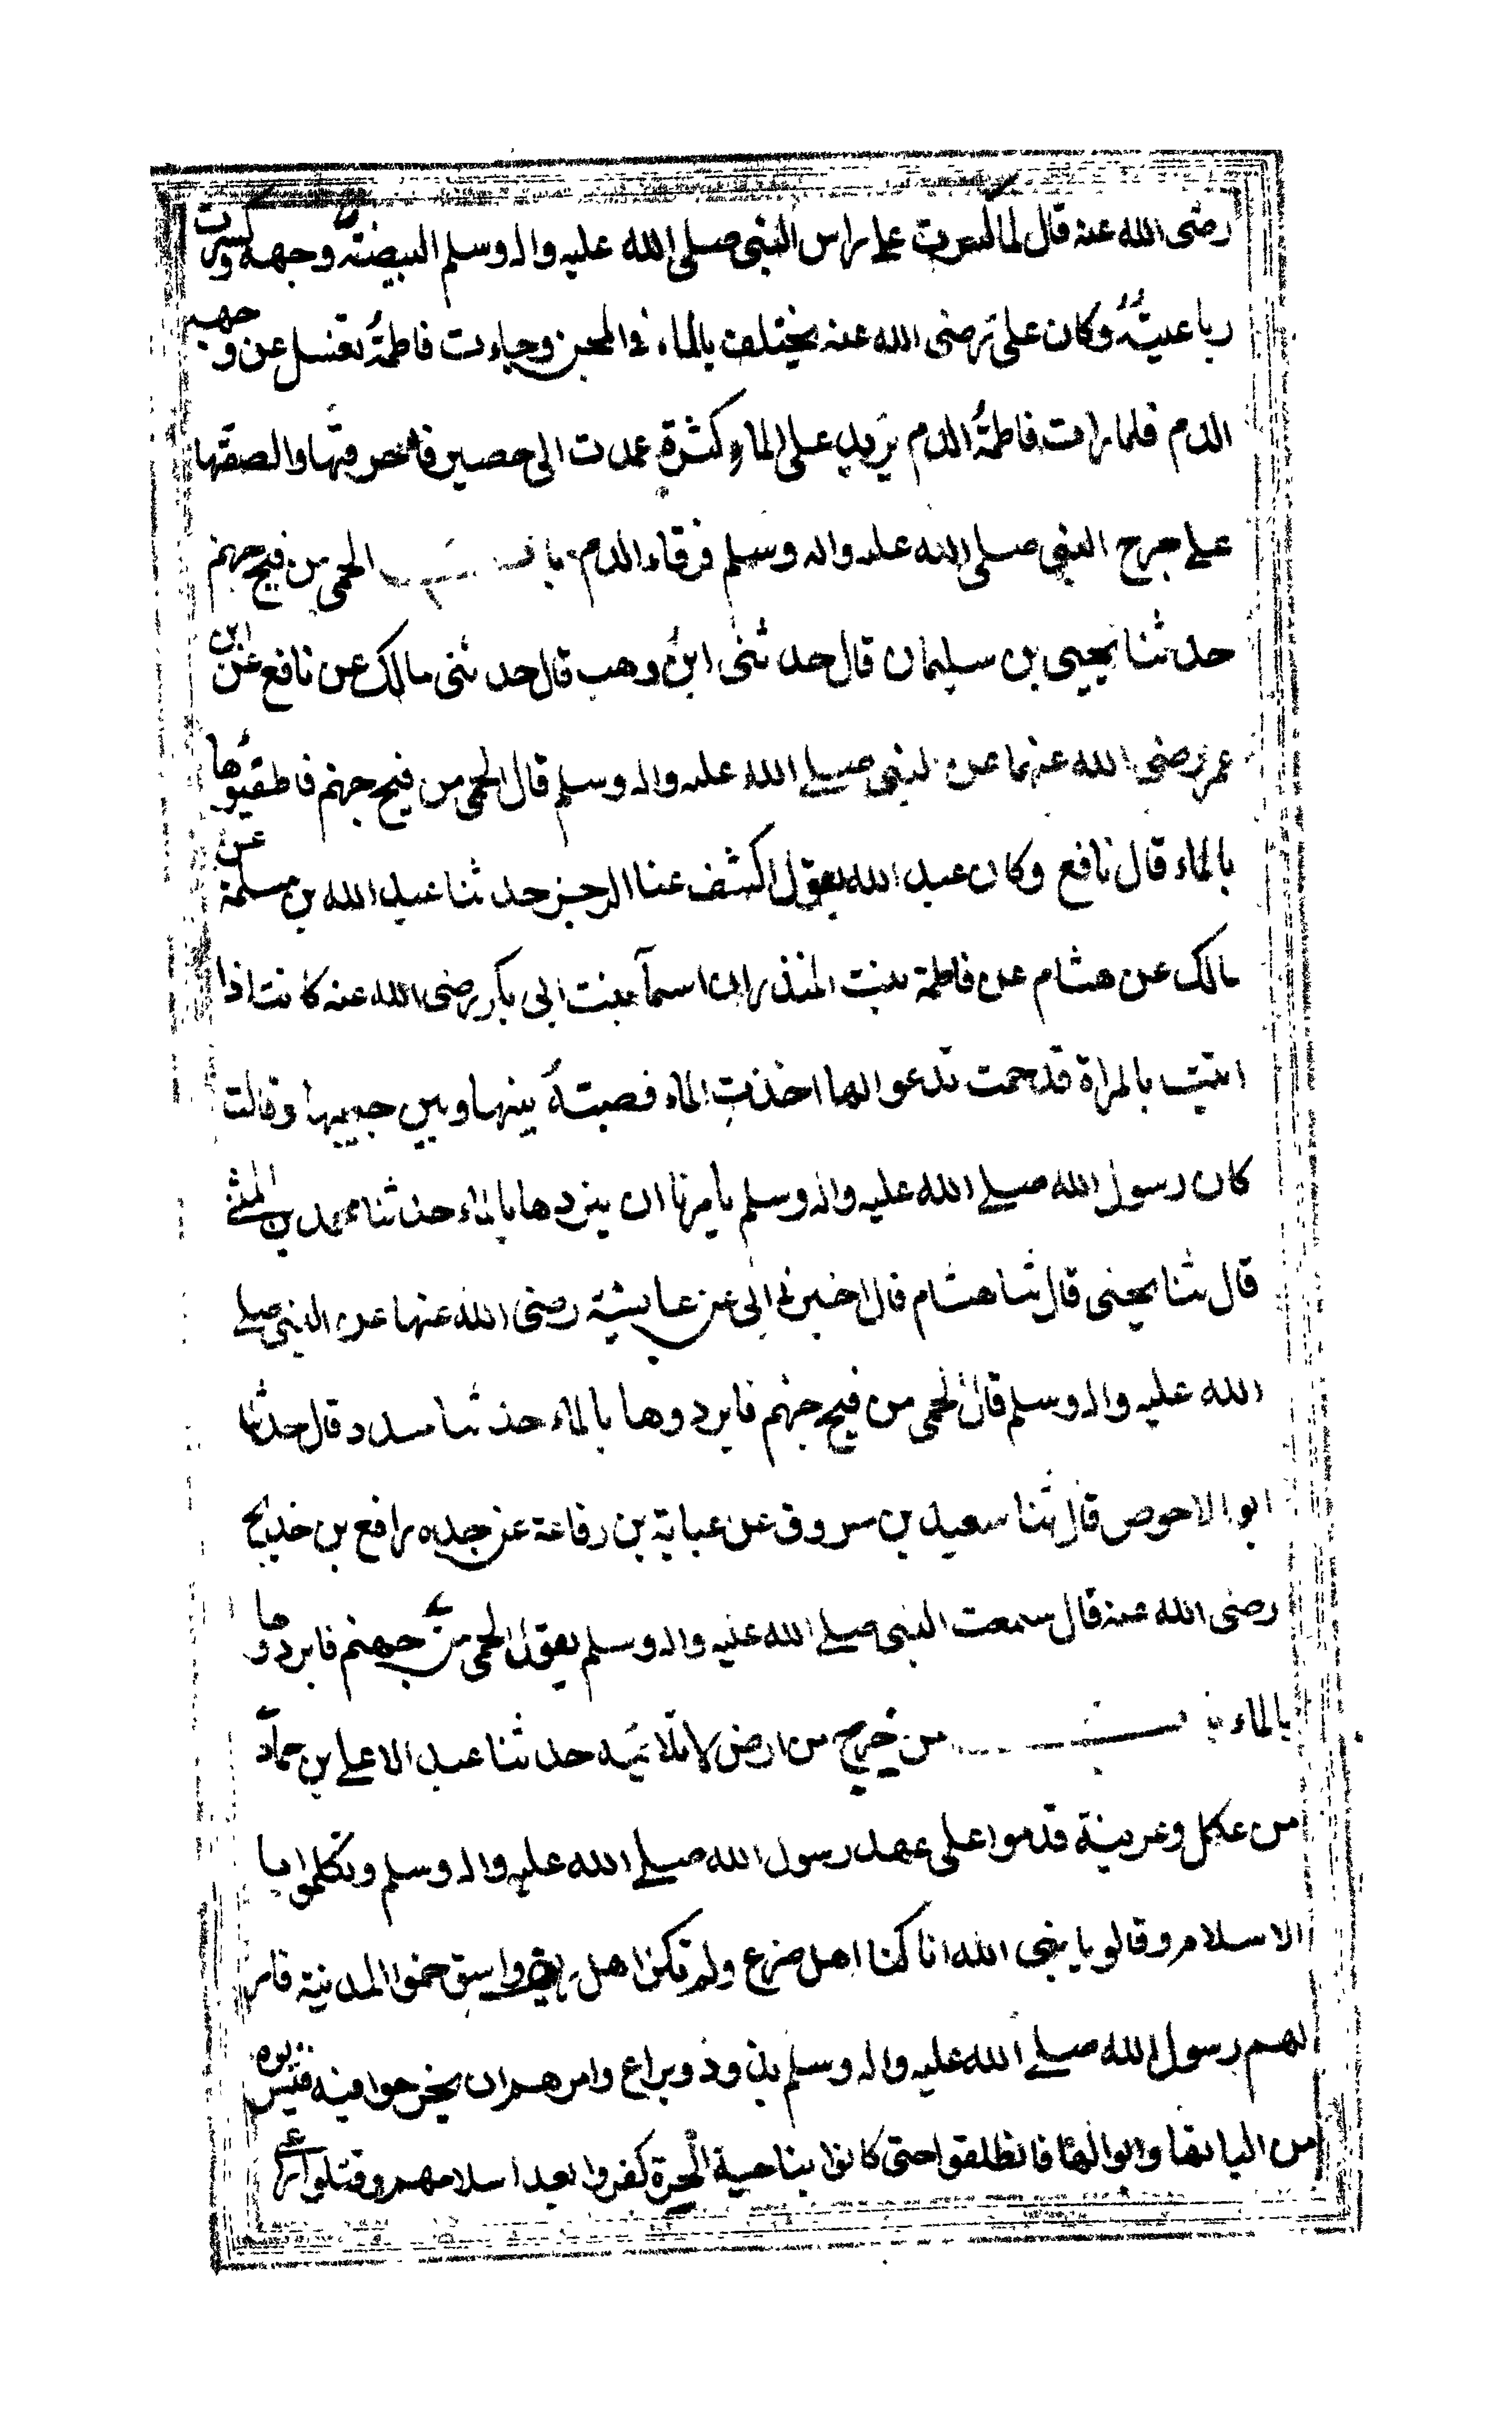 رضى الله عنه قال لما كسرت على راس النبى صلى الله عليه واله وسلم البيضة وجهه وكسرت
رباعيتهُ وكان على رضى الله عنه يختلف بالماء فى المجن وجاءت فاطمةُ تغسل عن وجهه
الدم فلما رات فاطمةُ الدم يزيد على الماءِ كثرة عمدت الى حصير فاحرقتها والصقتها
على جرح النبى صلى الله عليه واله وسلم فرقاء الدم باب الحمى من فيح جهنم
حدثنا يحيى بن سليمان قال حدثنى ابنُ وهب قال حدثنى مالك عن نافع عن ابن
عمر رضى الله عنهما عن النبى صلے الله عليه واله وسلم قال الحمى من فيح جهنم فاطفيوها
بالماء قال نافع وكان عبد الله يقول اكشف عنا الرجز حدثنا عبد الله بن مسلمة عن
مالك عن هشام عن فاطمة بنت المنذر ان اسمآ بنت ابى بكر رضى الله عنه كانت اذا
اتيت بالمراة قد حمت تدعو الها اخذتِ الماء فصبتهُ بينها وبين جيبها وقالت
كان رسول الله صلے الله عليه واله وسلم يامرنا ان نبردها بالماء حدثنا محمد بن المثنے
قال ثنا يحيى قال ثنا هشام قال اخبرنى ابى عن عايشة رضى الله عنها عن النبى صلے
الله عليه واله وسلم قال الحمى من فيح جهنم فابردوها بالماء حدثنا مسدد قال حدثنا
ابو الاحوص قال ثنا سعيد بن سروق عن عباية بن رفاعة عن جده رافع بن خديج
رضى الله عنه قال سمعت النبى صلے الله عليه واله وسلم يقول الحمى من جهنم فابردوها
بالماء من خرج من ارض لا تلائمه حدثنا عبد الاعلے بن حماد
من عكل وعرينة قدموا على عهد رسول الله صلے الله عليه واله وسلم وتكلموا با
الاسلام وقالو يا نبى الله انا كنا اهل ضرع ولم نكن اهل ريف واستوخموا المدينة فامر
لهم رسول الله صلے الله عليه واله وسلم بذود وبراع وامرهم ان يخرجوا فيه فيشربوه
من البانها وابوالها فانطلقوا حتى كانوا بناحية الحرة كفروا بعد اسلامهم وقتلوا راعے